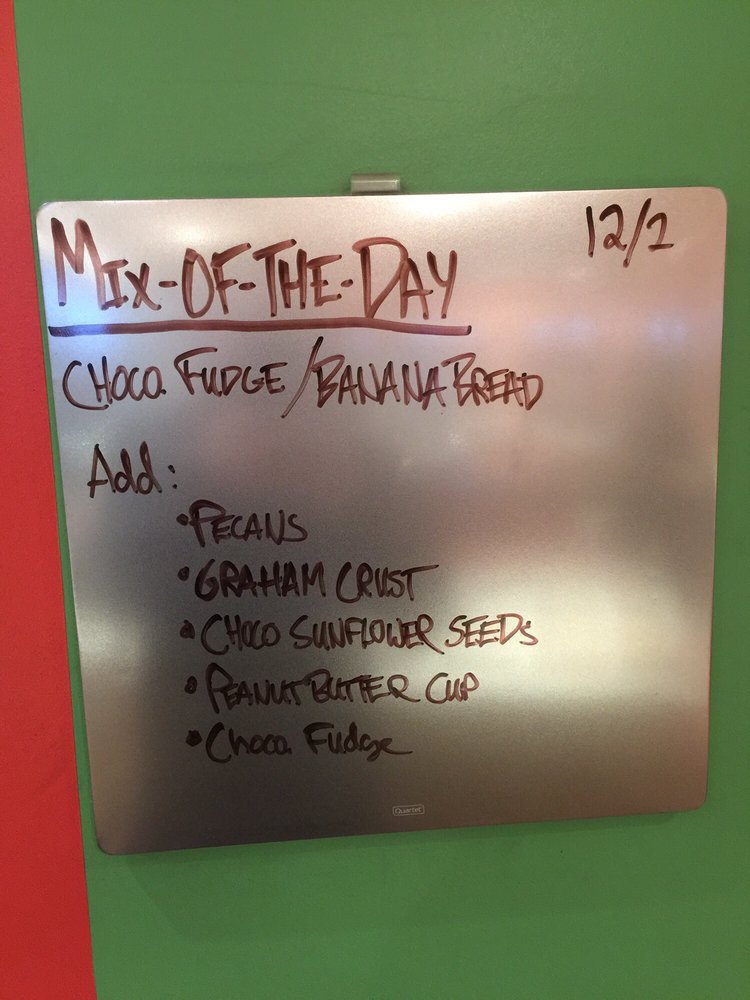 MIX-OF-THE-DAY
12/2
CHOCO. FUDGE/BANANA BREAD
Add:
•PECANS
•GRAHAM CRUST
•CHOCO SUNFLOWER SEEDS
•PEANUT BUTTER CUP
•Choco. Fudge
Quartet